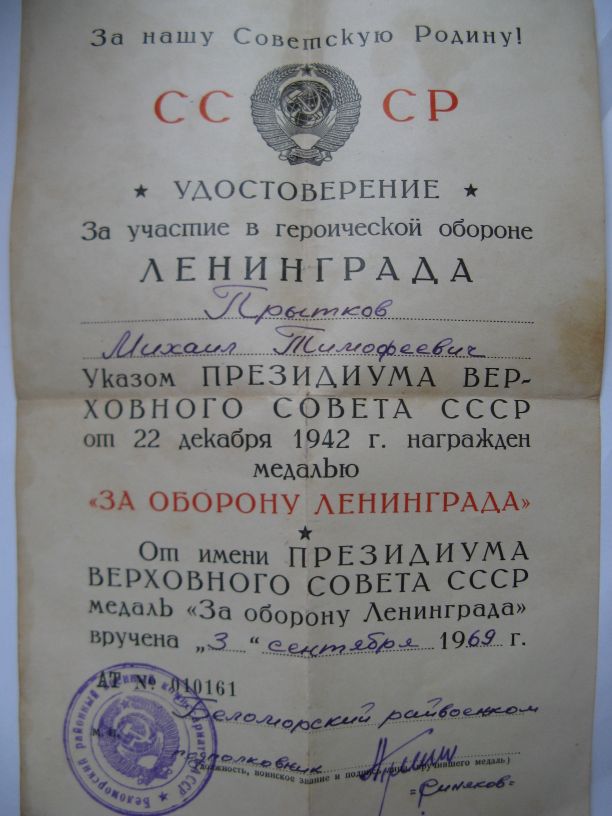 За нашу Советскую Родину!
СС СР
★ УДОСТОВЕРЕНИЕ ★
За участие в героической обороне
ЛЕНИНГРАДА
Прытков
Михаил Тимофеевич
Указом ПРЕЗИДИУМА ВЕР-
ХОВНОГО СОВЕТА СССР
от 22 декабря 1942 г. награжден
медалью
«ЗА ОБОРОНУ ЛЕНИНГРАДА»
★
От имени ПРЕЗИДИУМА
ВЕРХОВНОГО СОВЕТА СССР
медаль «За оборону Ленинграда»
вручена „3“ сентября 1969 г.
АТ № 010161
Беломорский райвоенком
м. п.
подполковник
(должность, воинское звание и подпись лица, вручившего медаль)
=Синяков=
Беломорский районный